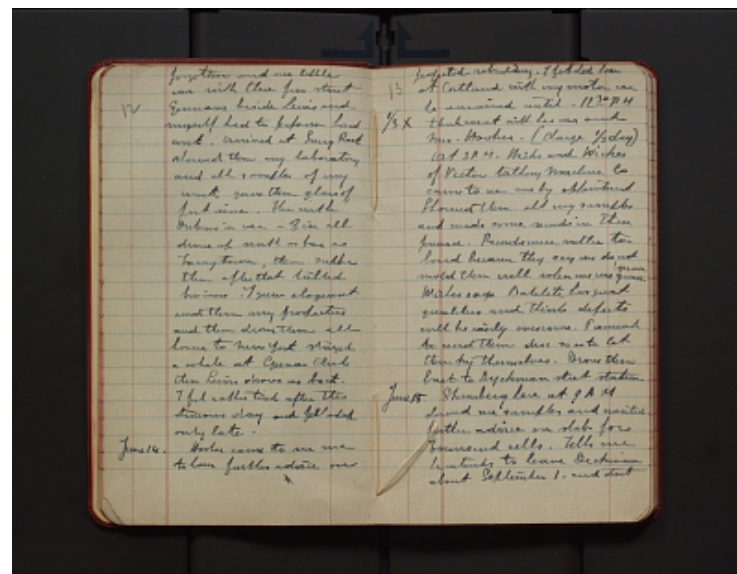 12
forgotten and our little
car with these five stout
Germans beside Lewis and
myself had to perform hard
work. Arrived at Snug Rock
showed them my laboratory
and all samples of my
work gave them glass of
port wine. Then with
in car - Five all
drove up north as far as
Tarrytown, then supper
then after that talked
business. I grew eloquent
and them my
and then drove them all
home to New York stayed
a while at Chemists Club
then Lewis drove us back.
I feel rather tired after this
day and
only late.
June 14. Hooker came to see me
to have further advice over
13
projected rebuilding.
at Cortland with my motor car
be until 12 30 PM
1/3 X that went with his car and
Mr. Hooker. (Charge 1/3 day)
At 3 P.M. and Wickes
of Victor talking machine Co
came to see me by appointment
Showed them all my samples
and made some records in their
presence. Records were rather too
hard because they say we do not
mold them well when we use
Wickes says Bakelite has good
qualities and thinks defects
will be easily overcome. Promised
to send them also so as to let
them try themselves. Drove them
back to Dyckman street station
June 15. Steinberg here at 9 A.M
showed me samples and wanted
further advice on slabs for
Townsend cells. Tells me
he intends to leave
about September 1. and start